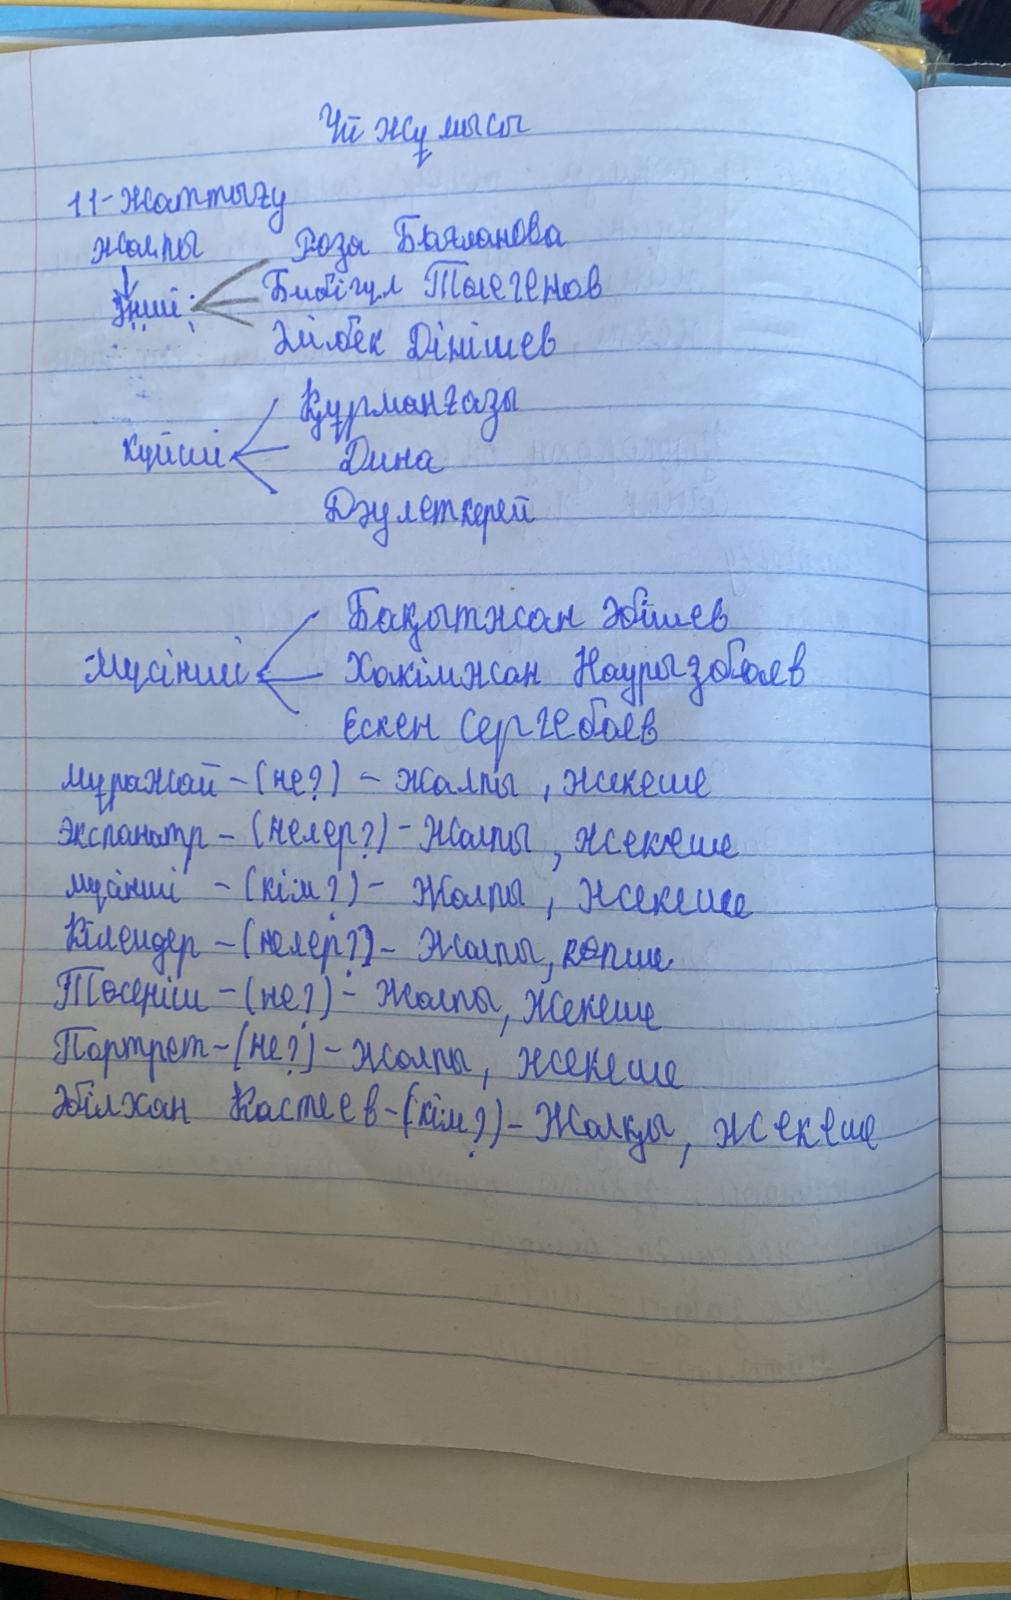 Үй жұмысы
11-жаттығу
жалпы Роза Бағланова
Әнші Бибігүл Төлегенов
Әлібек Дінішев
Құрманғазы
Күйші Дина
Дәулеткерей
Бақытжан Әбішев
Мүсінші Хакімжан Наурызбаев
Ескен Сергебаев
мұражай - (не?) - Жалпы, жекеше
экспанатр - (нелер?) - Жалпы, жекеше
мүсінші - (кім?) - Жалпы, жекеше
Кілемдер - (нелер?) - Жалпы, көпше
Төсеніш - (не?) - Жалпы, жекеше
Портрет - (не?) - жалпы, жекеше
Әбілхан Қастеев - (кім?) - Жалқы, жекеше